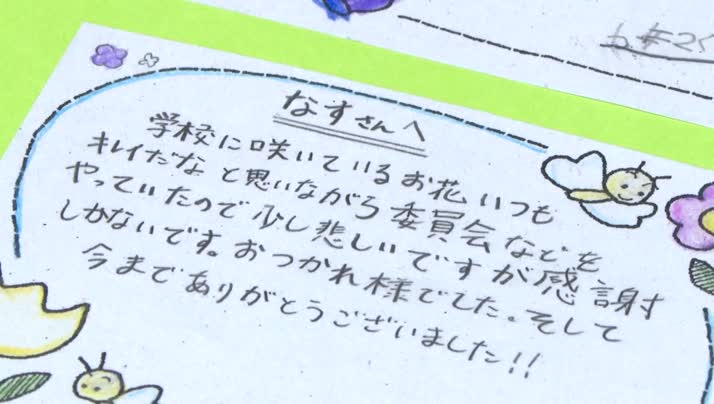 なすさんへ
学校に咲いているお花いつも
キレイだなと思いながら委員会などを
やっていたので少し悲しいですが感謝
しかないです。おつかれ様でした。そして
今までありがとうございました!!